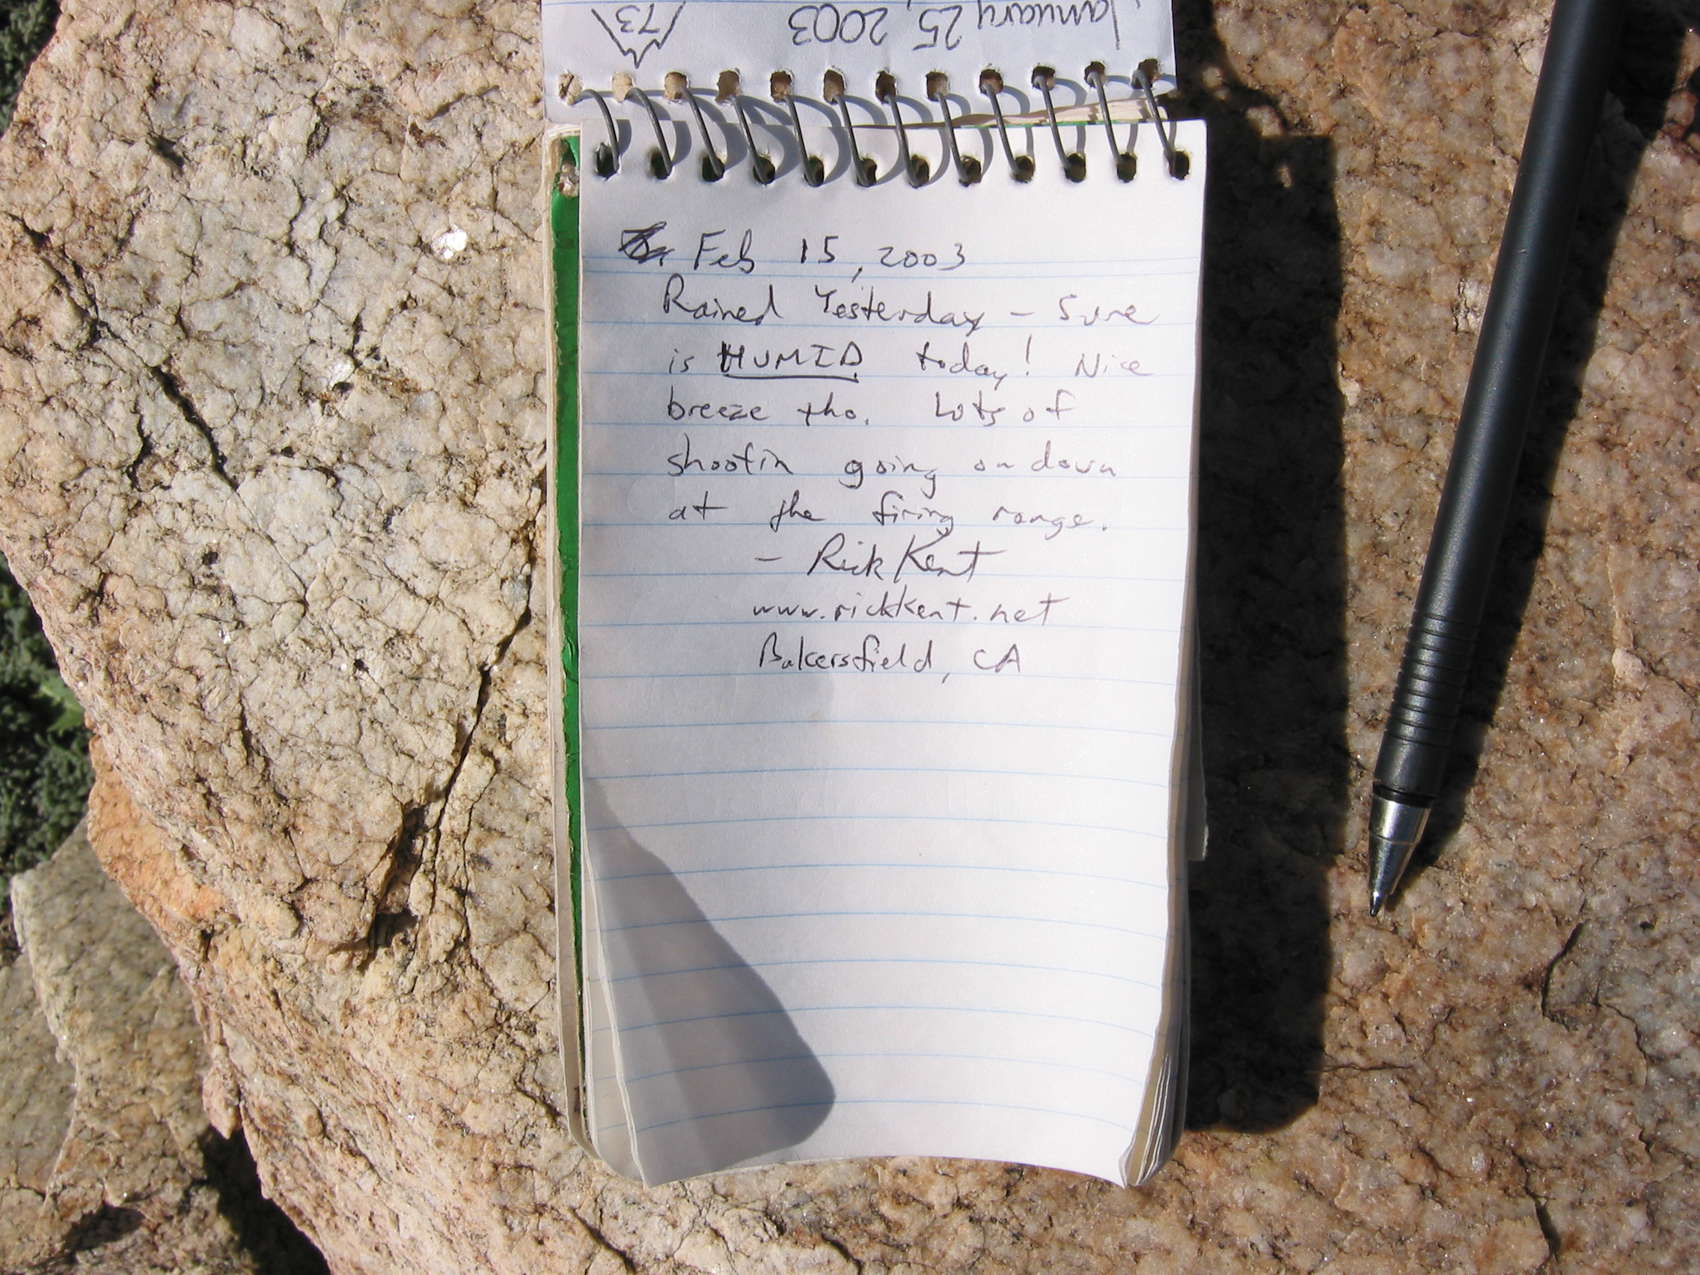 January 25, 2003
73
Feb 15, 2003
Rained Yesterday - Sure
is HUMID today! Nice
breeze tho. Lots of
shootin going on down
at the firing range.
- Rick Kent
www.rickkent.net
Bakersfield, CA